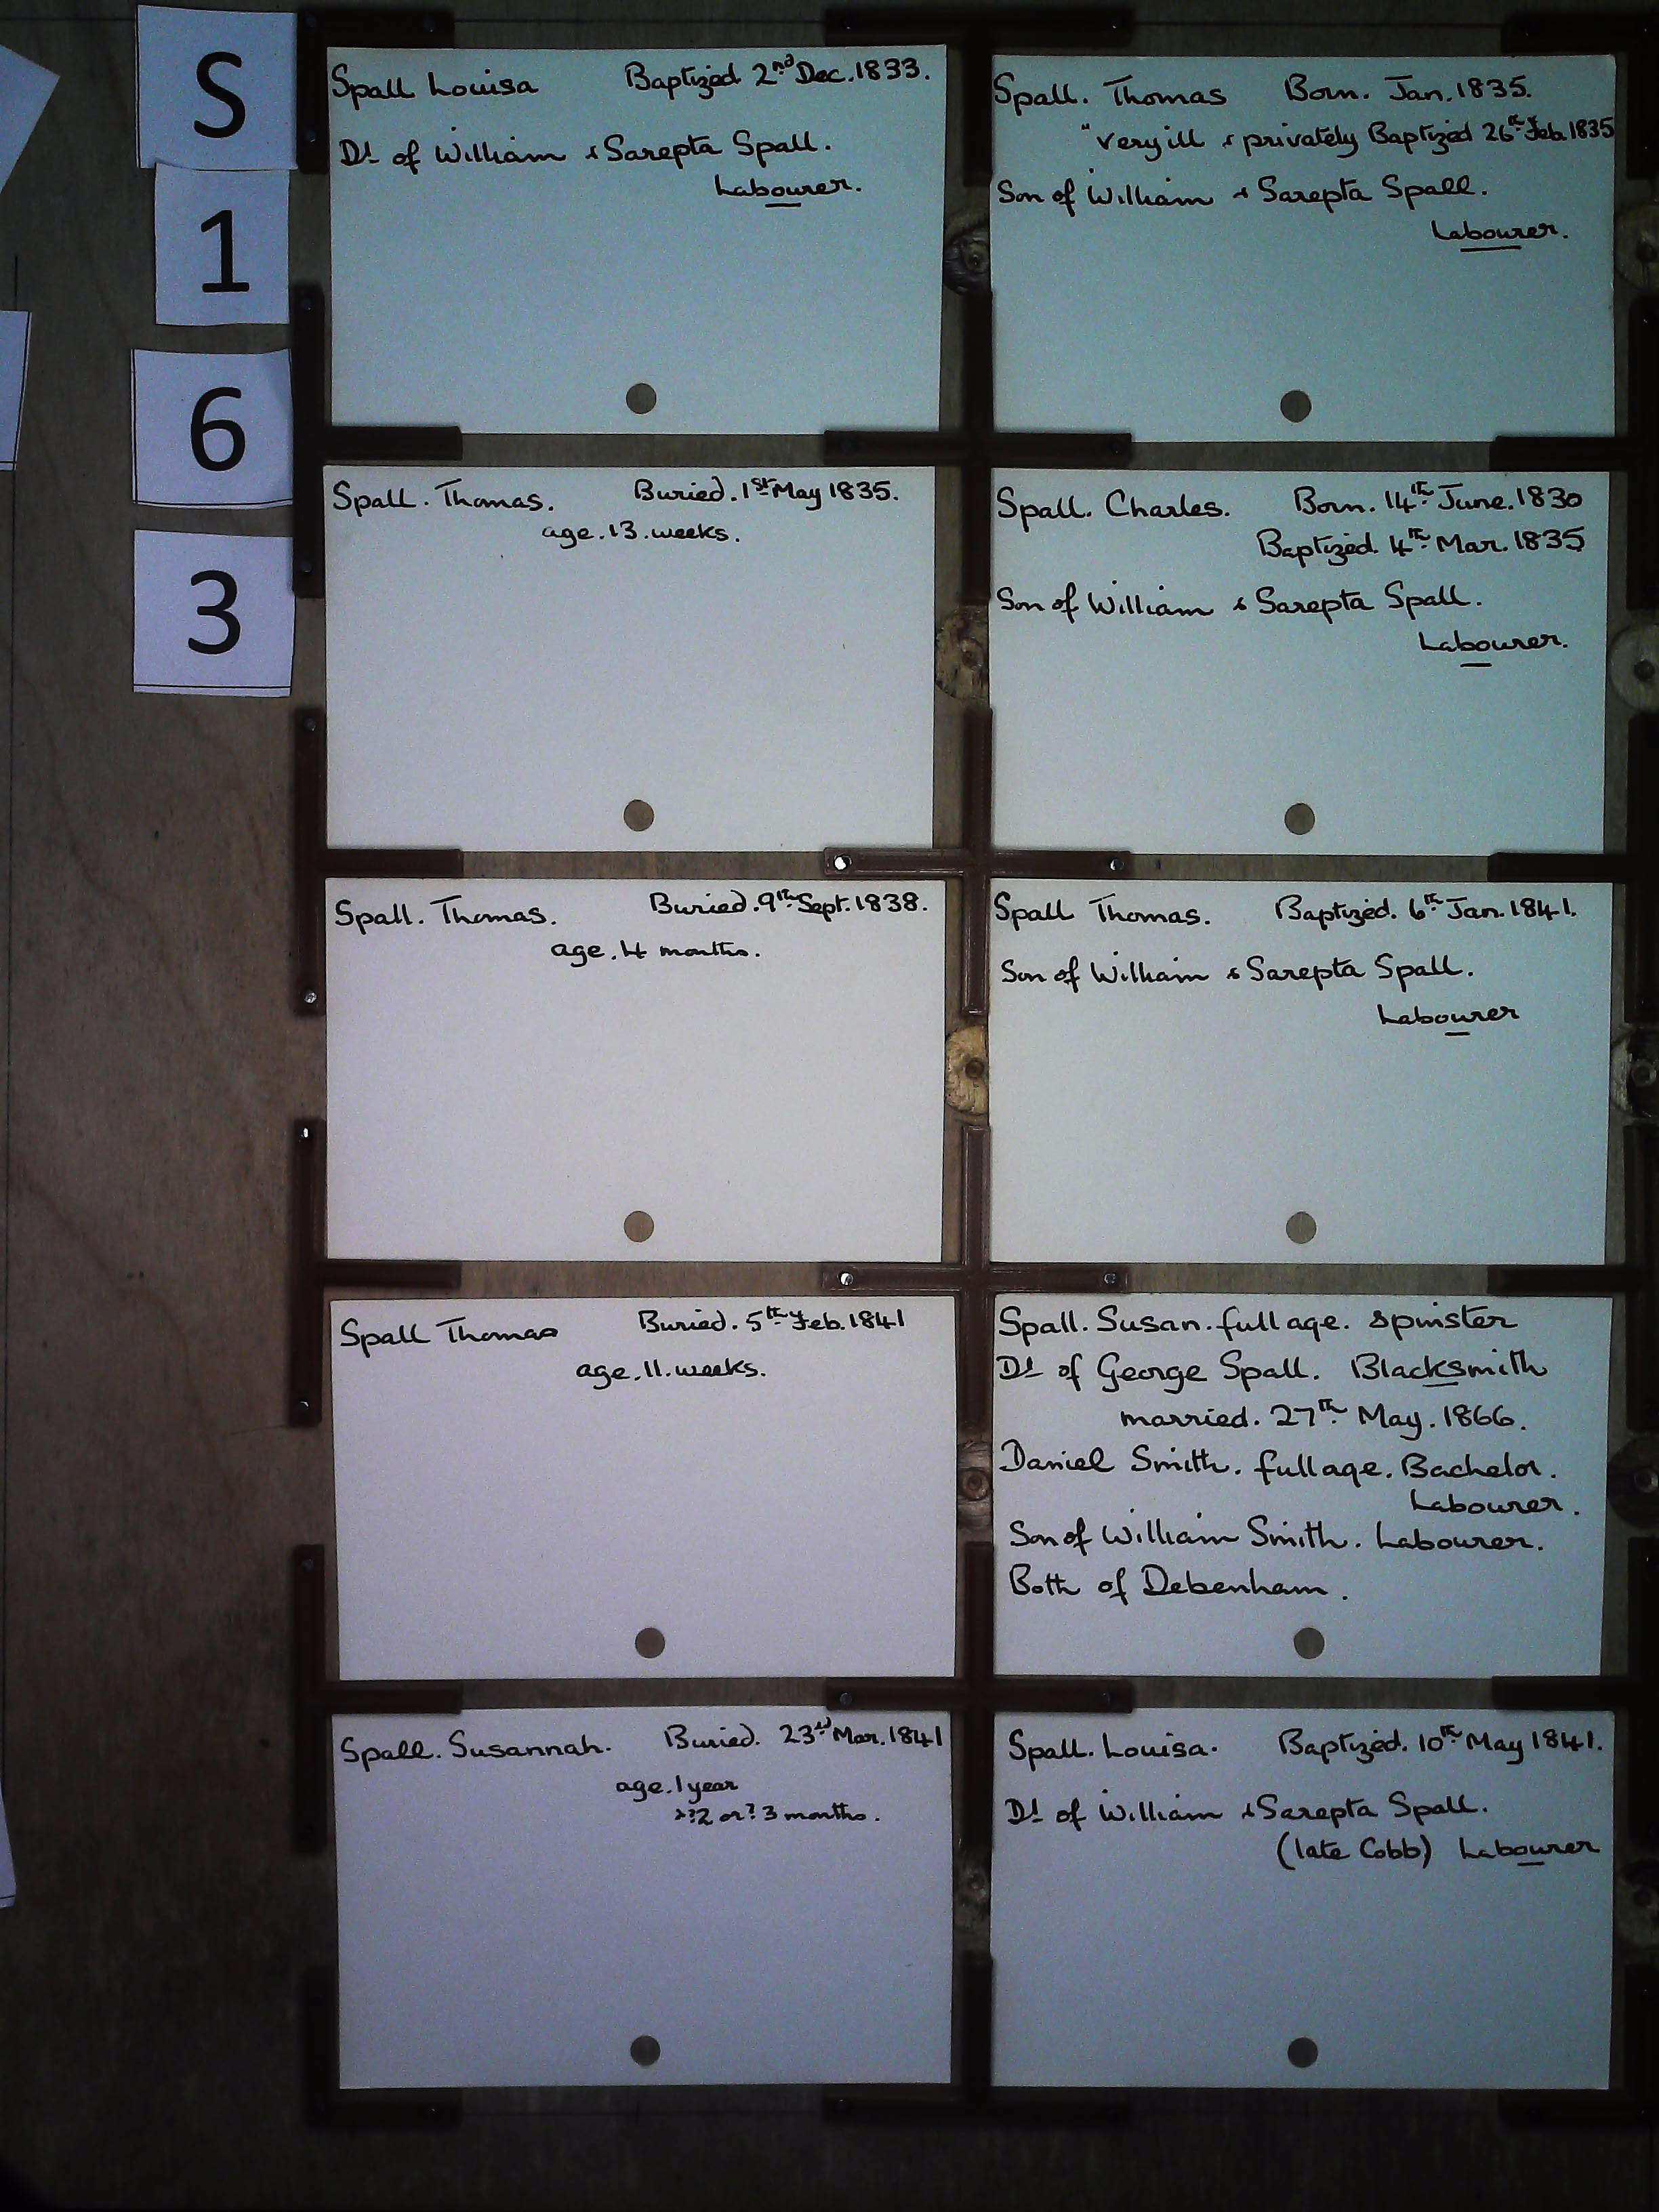 S
1
6
3
Spall Louisa Baptized 2nd Dec. 1833.
Dt of William & Sarepta Spall.
Labourer.
Spall. Thomas Born. Jan. 1835.
"very ill & privately Baptized 26th Feb. 1835
Son of William & Sarepta Spall.
Labourer.
Spall. Thomas. Buried. 1st May 1835.
age. 13. weeks.
Spall. Charles. Born. 14th June. 1830
Baptized. 4th Mar. 1835
Son of William & Sarepta Spall.
Labourer.
Spall. Thomas. Buried. 9th Sept. 1838.
age. 4 months.
Spall Thomas. Baptized. 6th Jan. 1841.
Son of William & Sarepta Spall.
Labourer
Spall Thomas Buried. 5th Feb. 1841
age. 11. weeks.
Spall. Susan. full age. Spinster
Dt of George Spall. Blacksmith
married. 27th May. 1866.
Daniel Smith. full age. Bachelor.
Labourer.
Son of William Smith. Labourer.
Both of Debenham.
Spall. Susannah. Buried. 23rd Mar. 1841
age. 1 year
& ?2 or ? 3 months.
Spall. Louisa. Baptized. 10th May 1841.
Dt of William & Sarepta Spall.
(late Cobb) Labourer